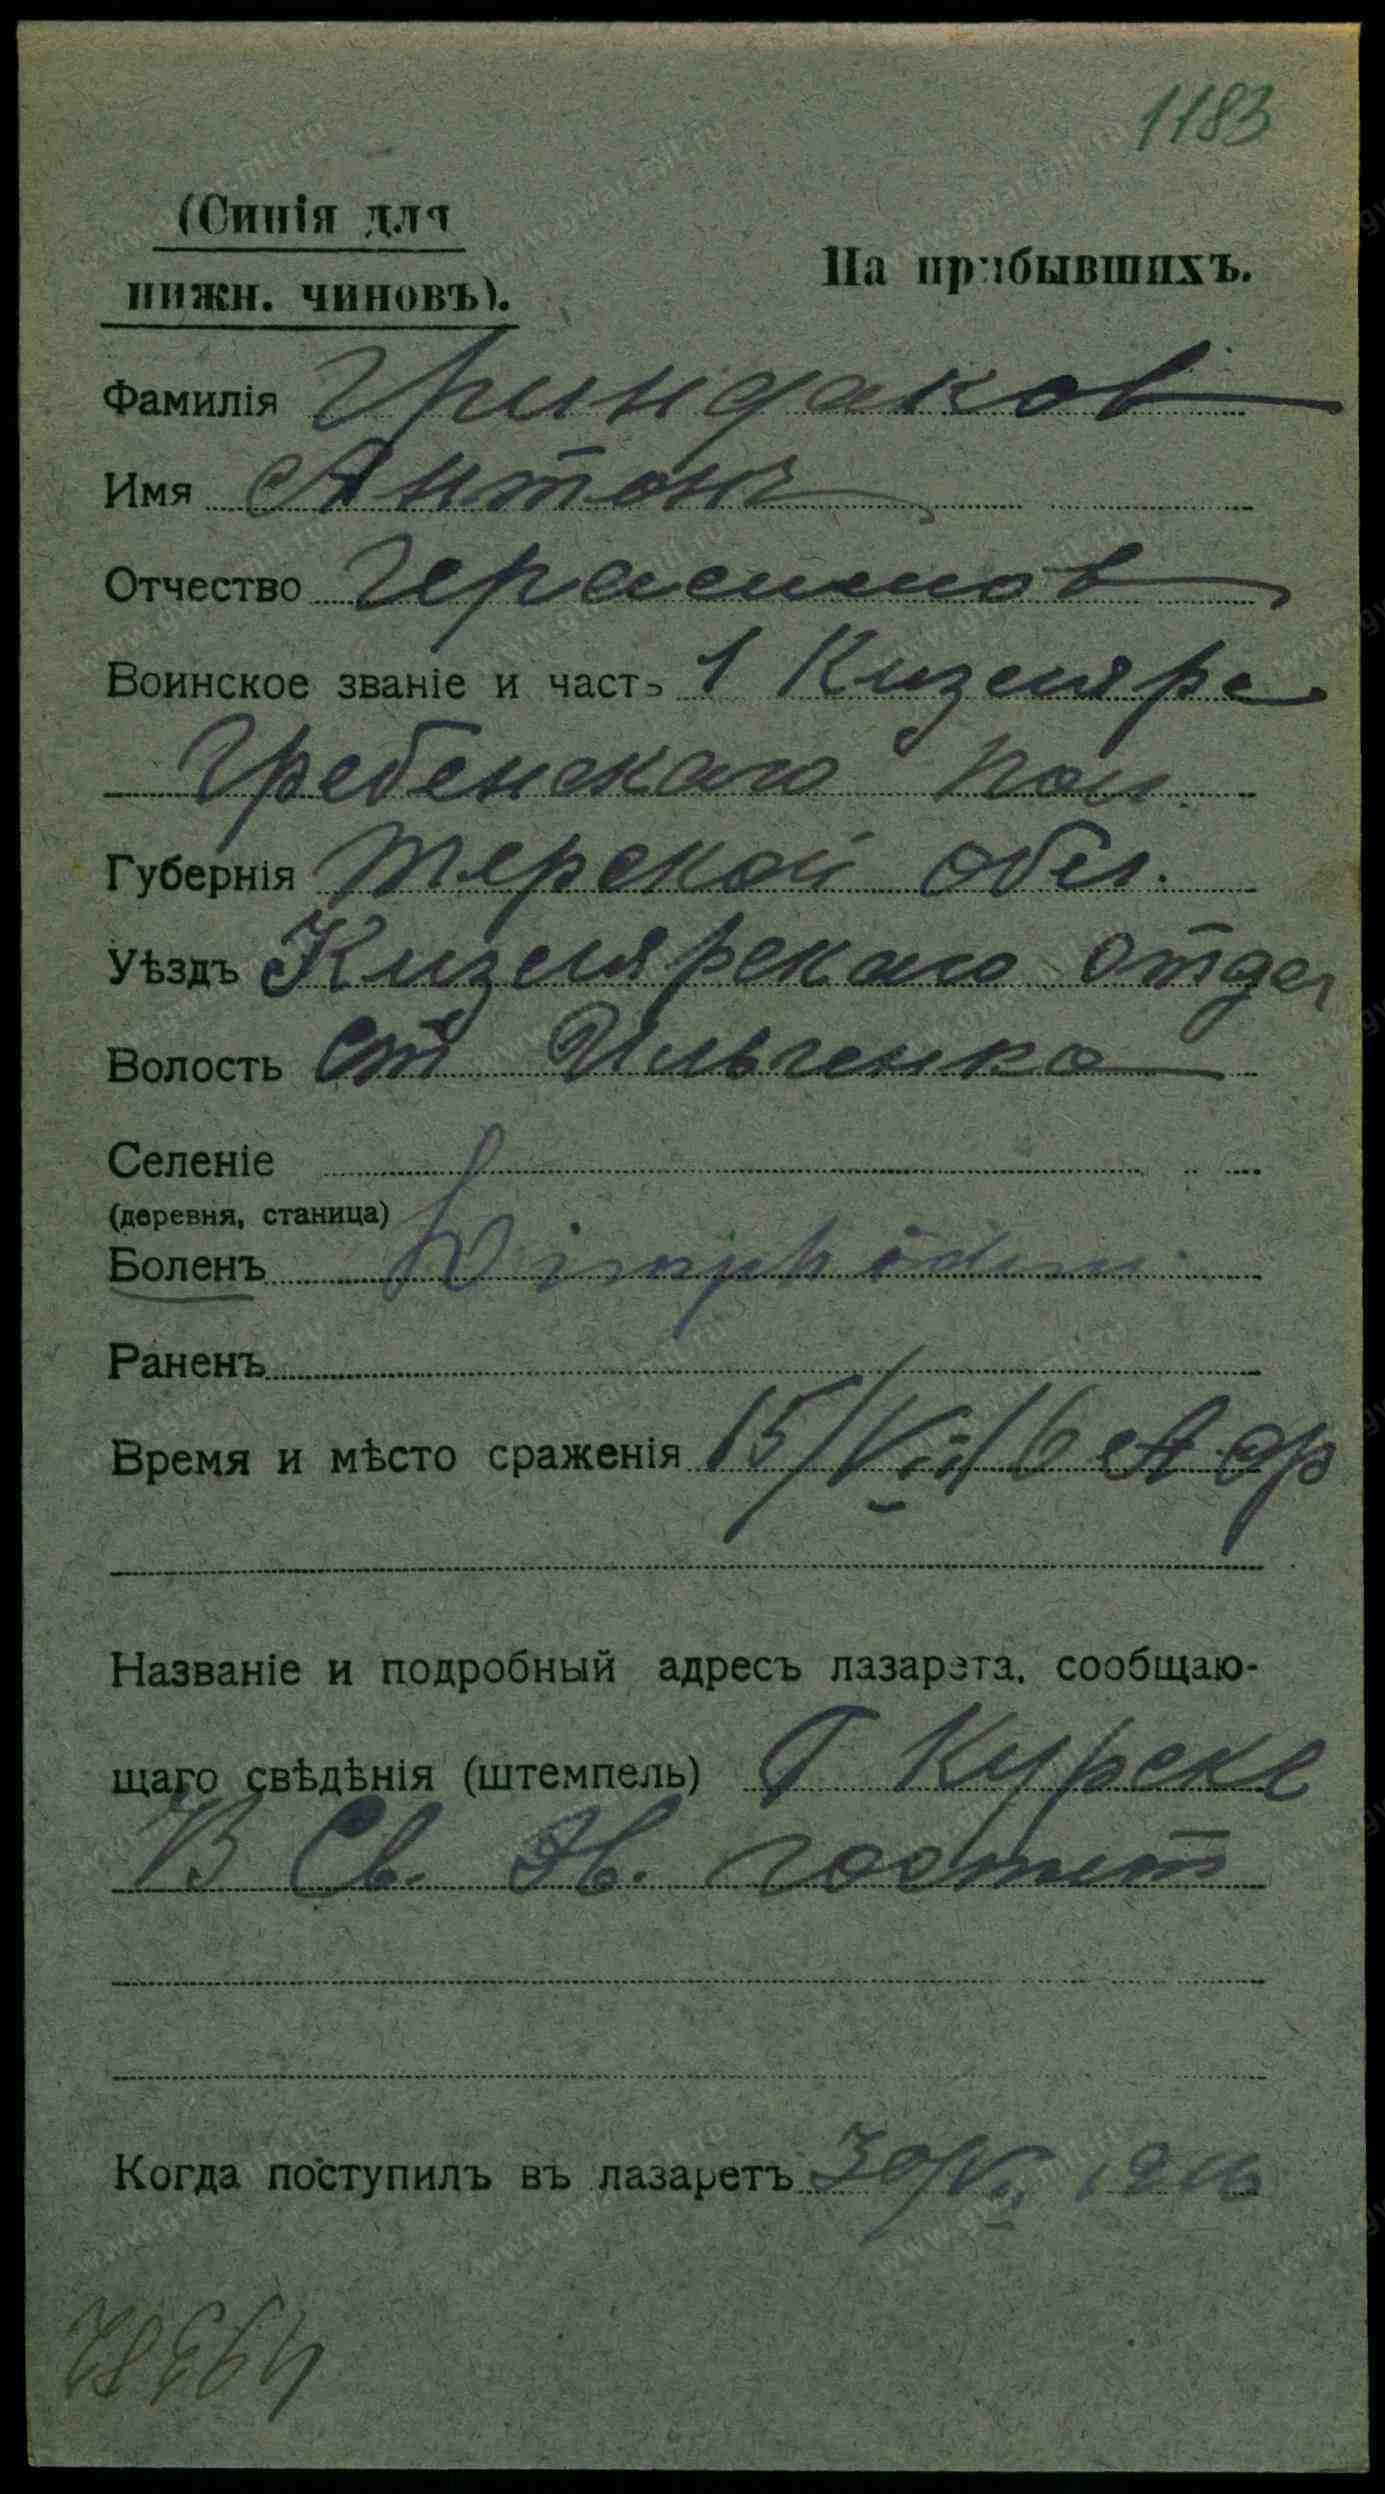 1183
(Синія для
нижн. чиновъ).
На прибывшихъ.
Фамилія Гриндаков
Имя Антонъ
Отчество Герасимов
Воинское званіе и часть 1 Кизлярс
Гребенскаго пол.
Губернія Терской обл.
Уѣздъ Кизлярскаго отдел
Волость Ст
Селеніе
(деревня, станица)
Боленъ
Раненъ
Время и мѣсто сраженія 15/VII 16
Названіе и подробный адресъ лазарета, сообщаю-
щаго свѣдѣнія (штемпель) Г Курске
В Св. госпит
Когда поступилъ въ лазаретъ 30/VII 1916